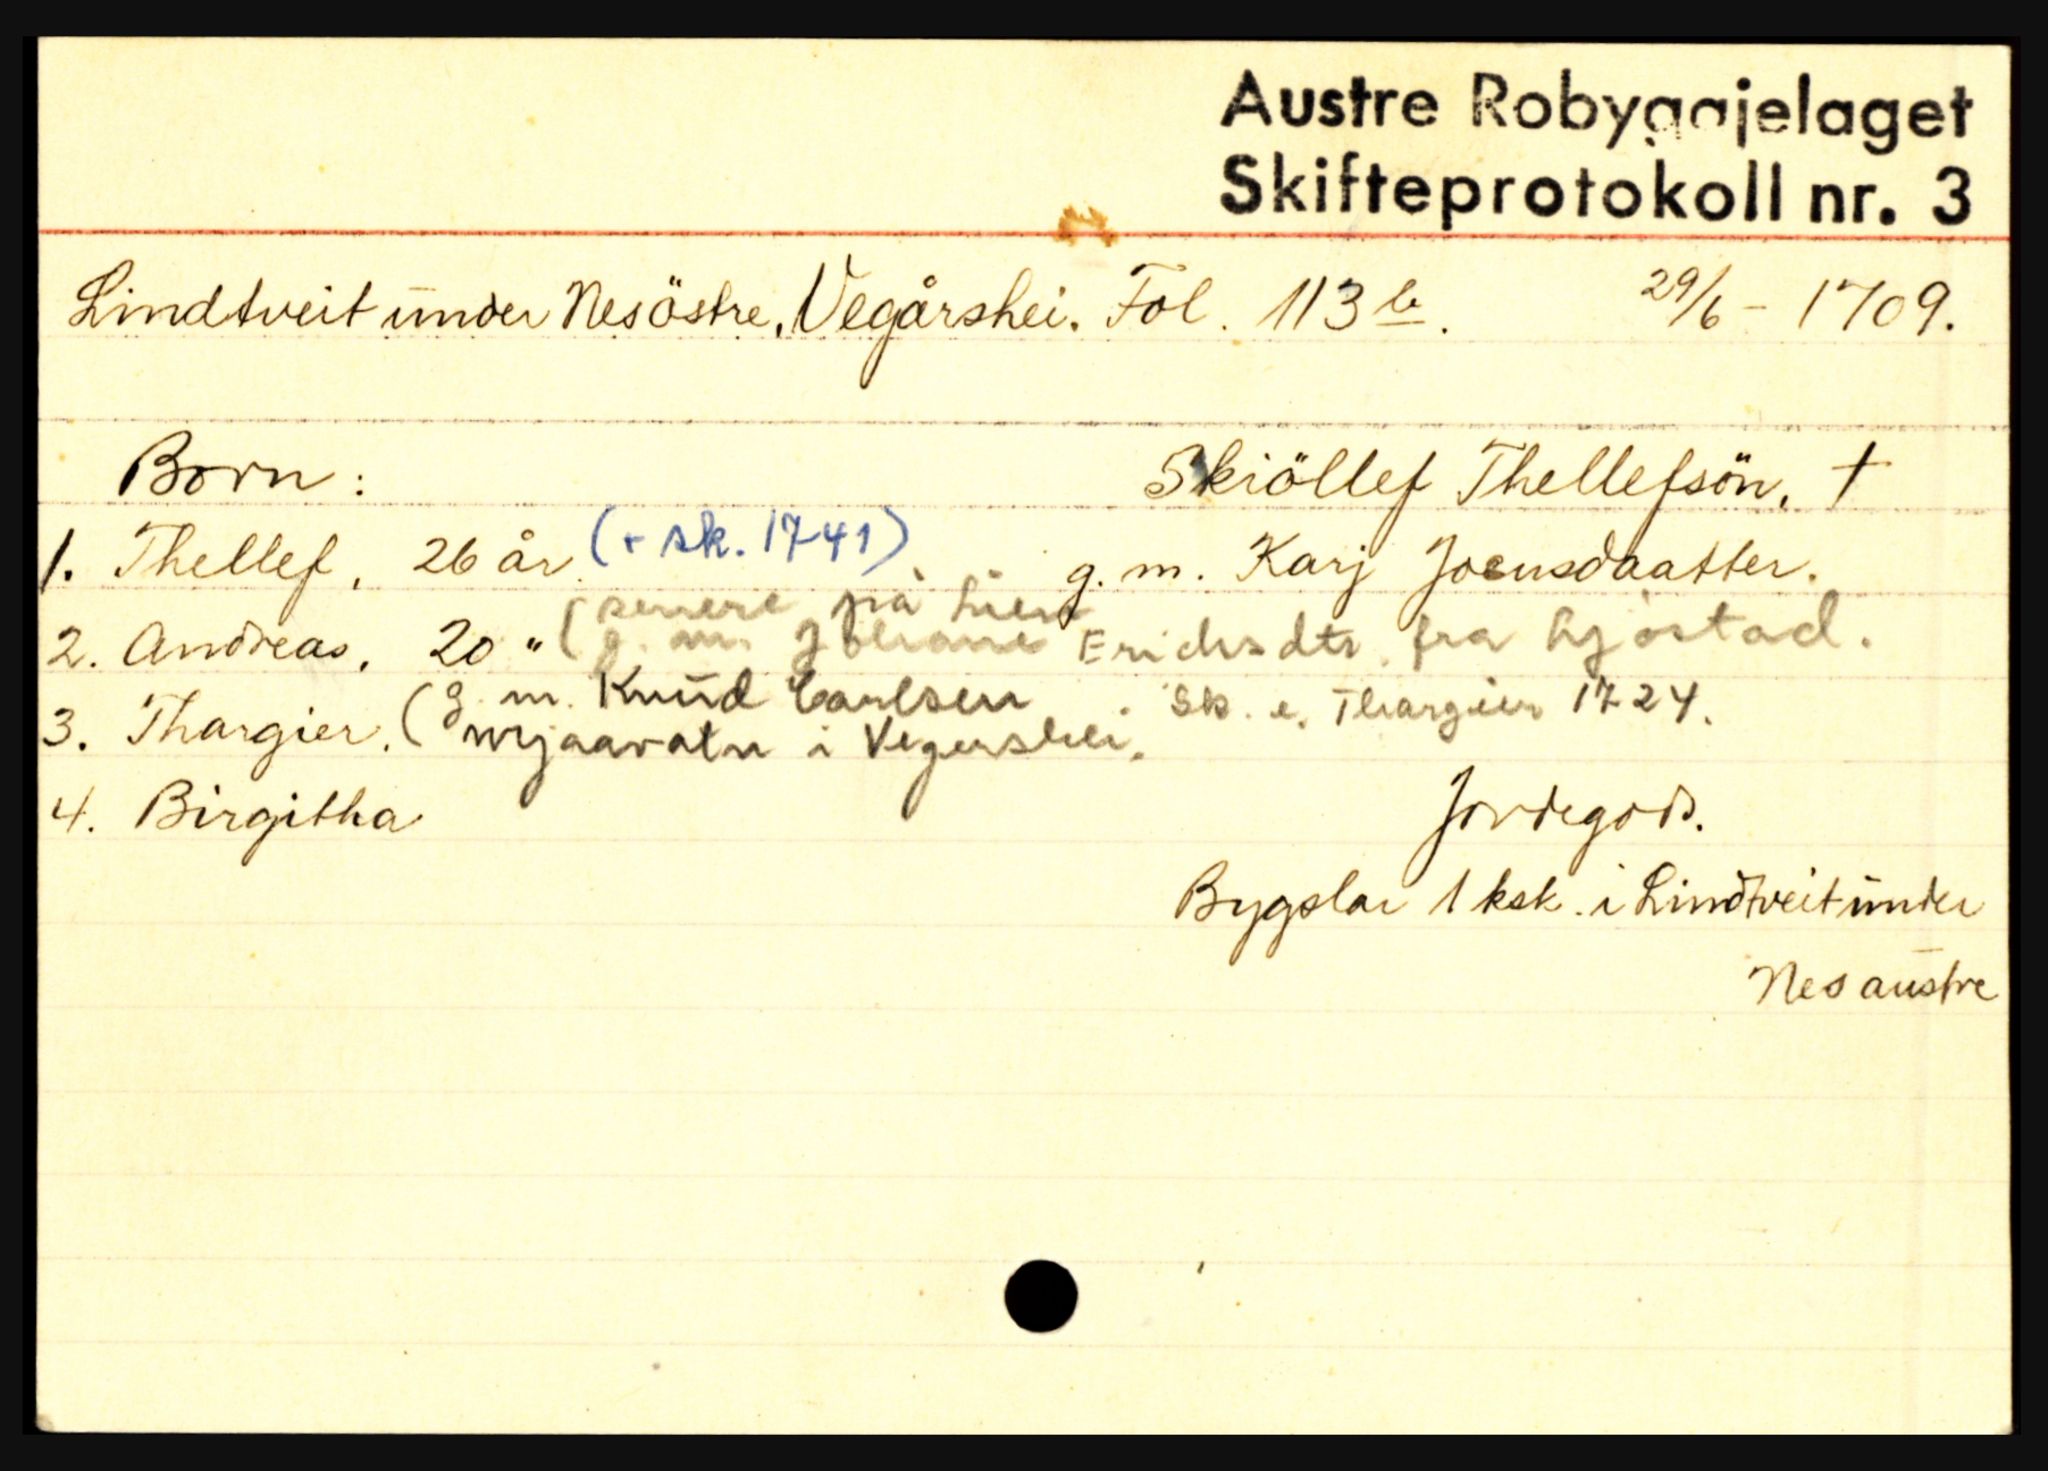 Austre Robyggjelaget
Skifteprotokoll nr. 3
Lindtveit under Nes östre, Vegårshei. Fol. 113 b. 29/6 - 1709.
Born: Skiöllef Thellefsön, †
1. Thellef, 26 år. (+ sk. 1741) g. m. Karj Joensdaatter.
(senere på
2. Andreas, 20 " g. m. Johanne Erichsdtr. fra Hjöstad.
(g. m. Knud Carlsen . Sk. e. Thargier 1724.
3. Thargier. Mjaavatn i Vegurshei.
4. Birgitha Jordegods.
Bygslar 1 ksk. i Lindtveit under
Nes austre